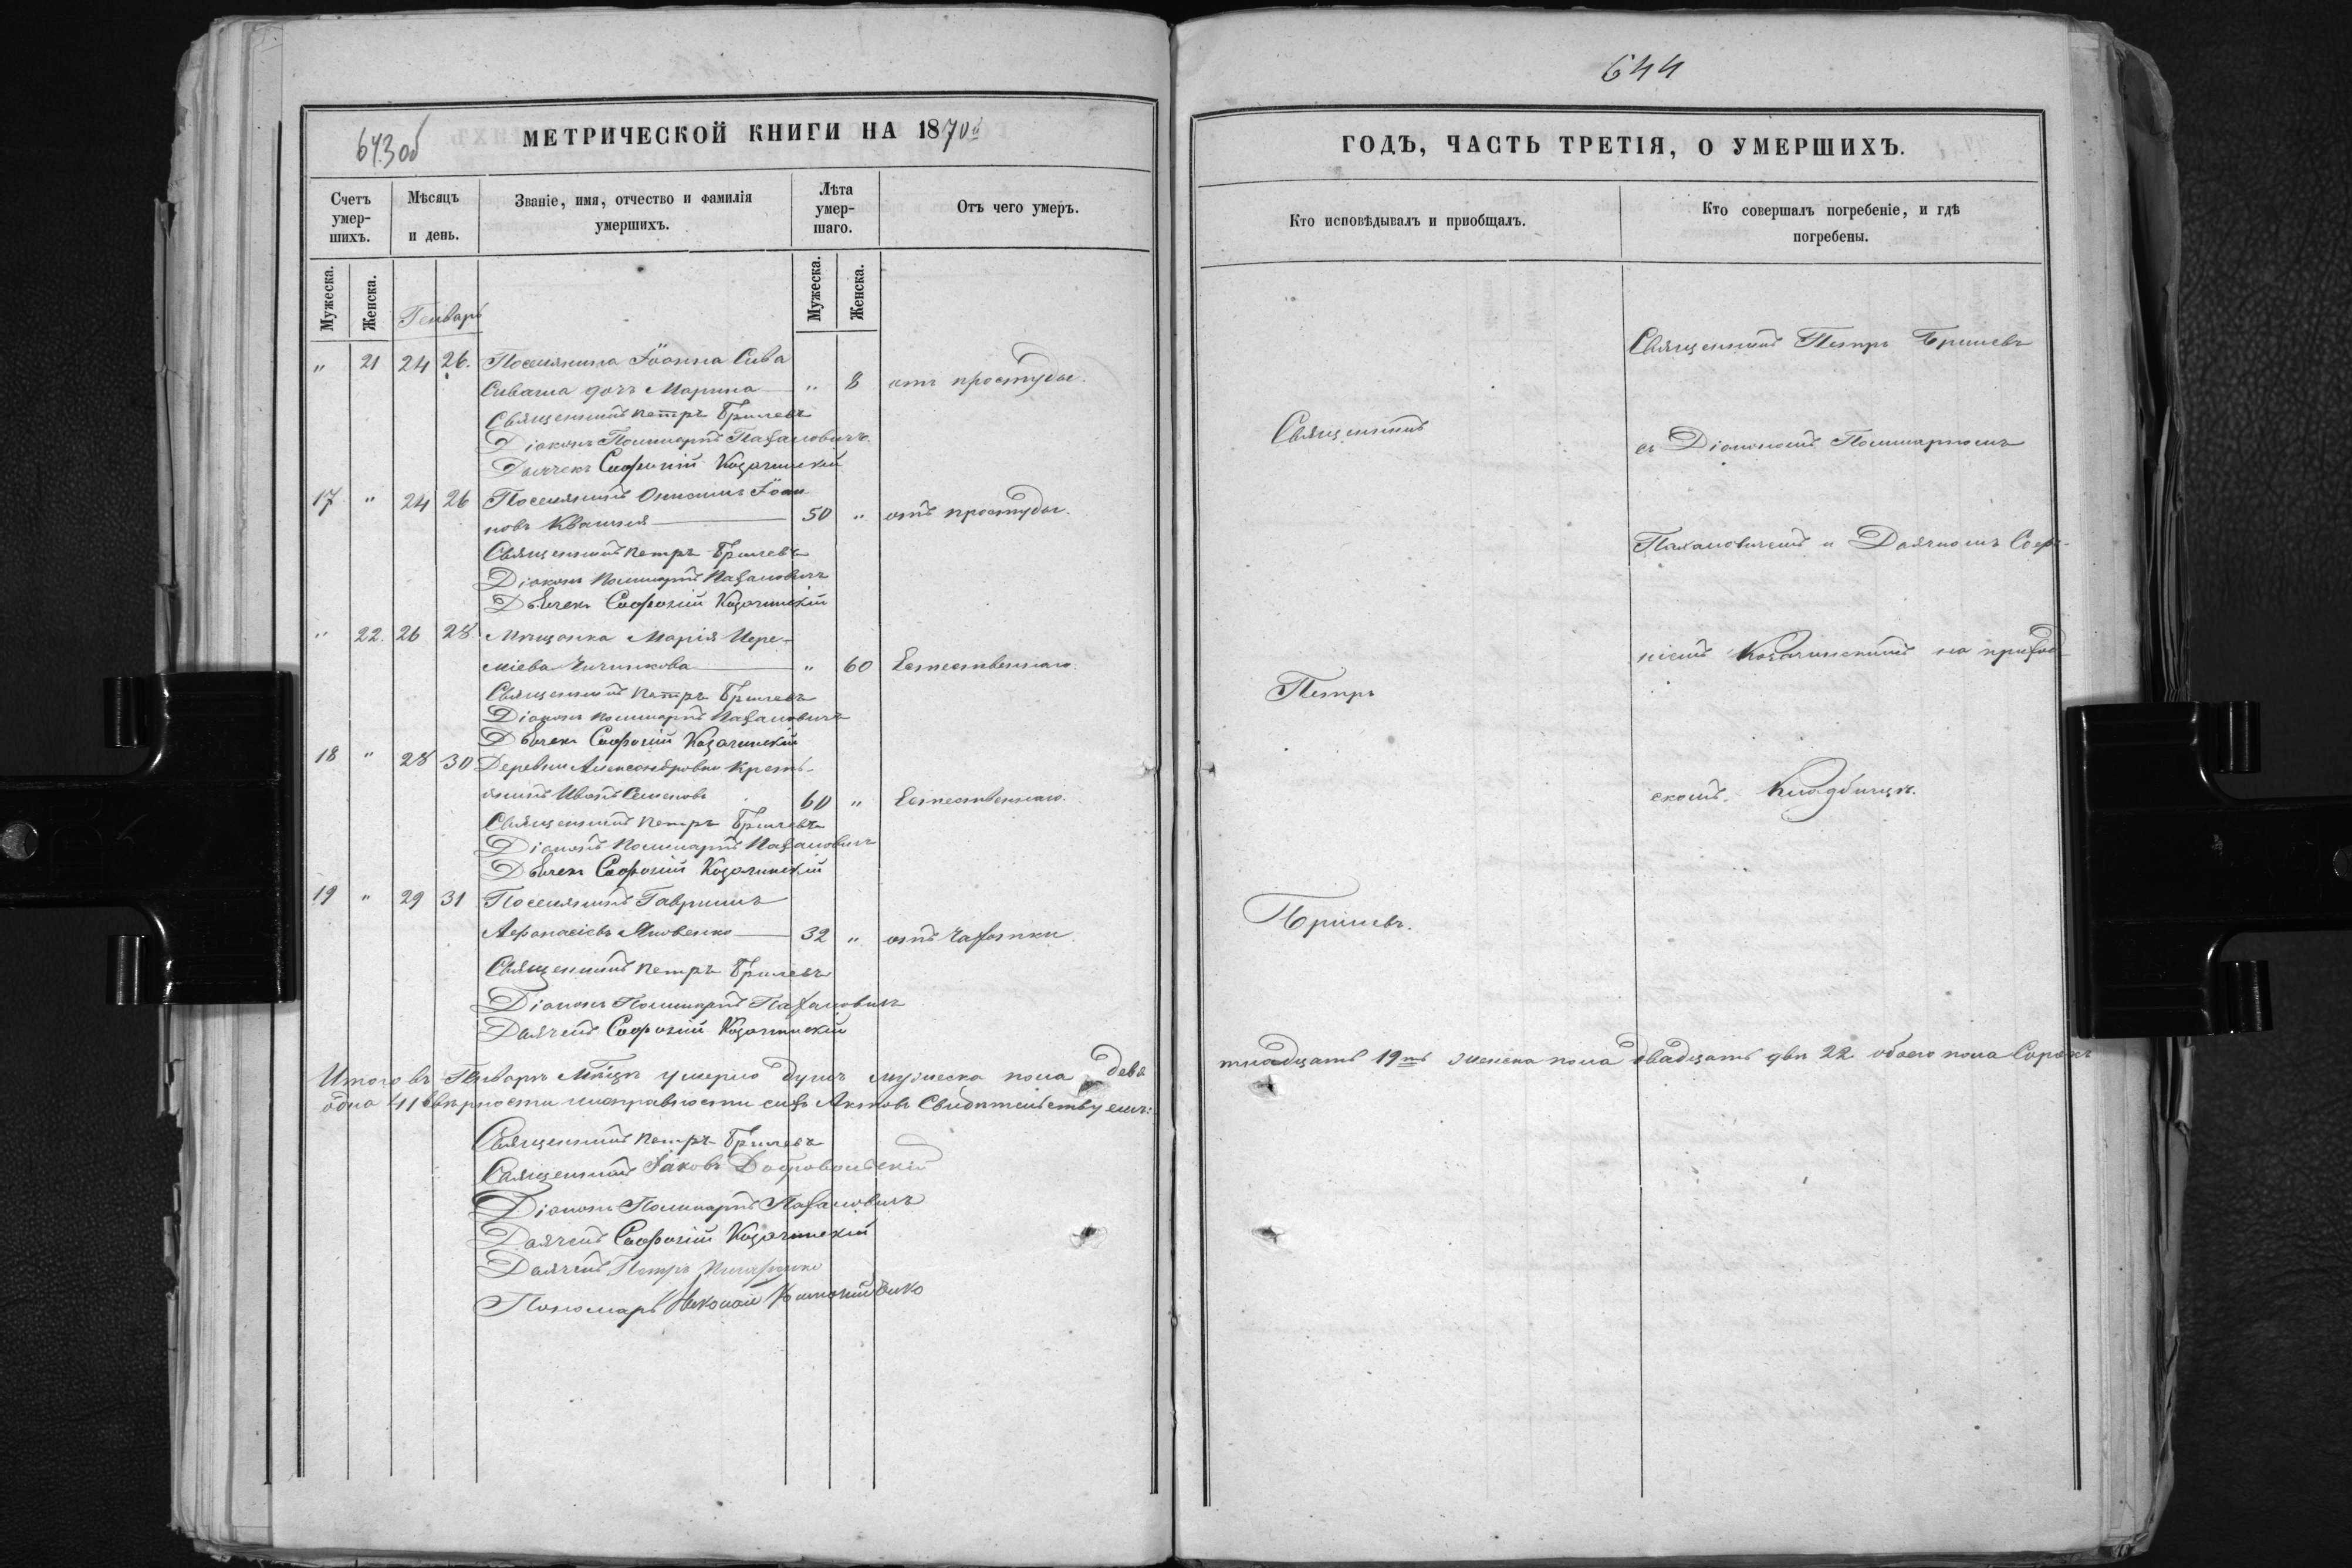 643об
МЕТРИЧЕСКОЙ КНИГИ НА 1870й
Счетъ умер-шихъ.
Мѣсяцъ и день.
Званіе, имя, отчество и фамилія умершихъ.
Лѣта умер-шаго.
Отъ чего умеръ.
Мужеска.
Женска.
Мужеска.
Женска.
Генварь
" 21 24 26. Поселянина Іоанна Сива
Сиваша дочь Марина " 8 отъ простуды.
Священникъ Петръ Брилевъ
Діаконъ Поликарпъ Пахаловичъ.
Дьячекъ Софроній Козачинскій
17 " 24 26 Поселянинъ Онисимъ Іоан
новъ Квашня 50 " отъ простуды.
Священникъ Петръ Брилевъ
Діаконъ Поликарпъ Пахаловичъ
Дьячекъ Софроній Козачинскій
" 22. 26 28. Мѣщанка Марія Иере-
міева Чичикова " 60 Естественною.
Священникъ Петръ Брилевъ
Діаконъ Поликарпъ Пахаловичъ
Дьячекъ Софроній Козачинскій
18 " 28 30 Деревни Александровки Кресть-
янинъ Иванъ Семеновъ 60 " Естественною.
Священникъ Петръ Брилевъ
Діаконъ Поликарпъ Пахаловичъ
Дьячекъ Софроній Козачинскій
19 " 29 31 Поселянинъ Гавріилъ
Афанасіевъ Яковенко 32 " отъ чахотки.
Священникъ Петръ Брилевъ
Діаконъ Поликарпъ Пахаловичъ
Даячекъ Софроній Козачинскій
Итого въ Генварѣ Мѣсяцѣ умерло душъ мужеска пола девя
одно 41 вѣрности исправности сихъ Актовъ Свидѣтельствуемъ:
Священникъ Петръ Брилевъ
Священникъ Іаковъ Добровольскій
Діаконъ Поликарпъ Пахаловичъ
Даячекъ Софроній Козачинскій
Даячекъ Петръ
Пономарь Николай
644
ГОДЪ, ЧАСТЬ ТРЕТІЯ, О УМЕРШИХЪ.
Кто исповѣдывалъ и пріобщалъ.
Кто совершалъ погребеніе, и гдѣ погребены.
Священникъ Петръ Брилевъ
Священникъ
съ Діакономъ Поликарпомъ
Пахаловичемъ и Даячкомъ Софро-
ніемъ Козачинскимъ на приход
Петръ
скомъ Кладбищѣ.
Брилевъ.
тнадцать 19ть женска пола двадцать двѣ 22 обоего пола Сорокъ